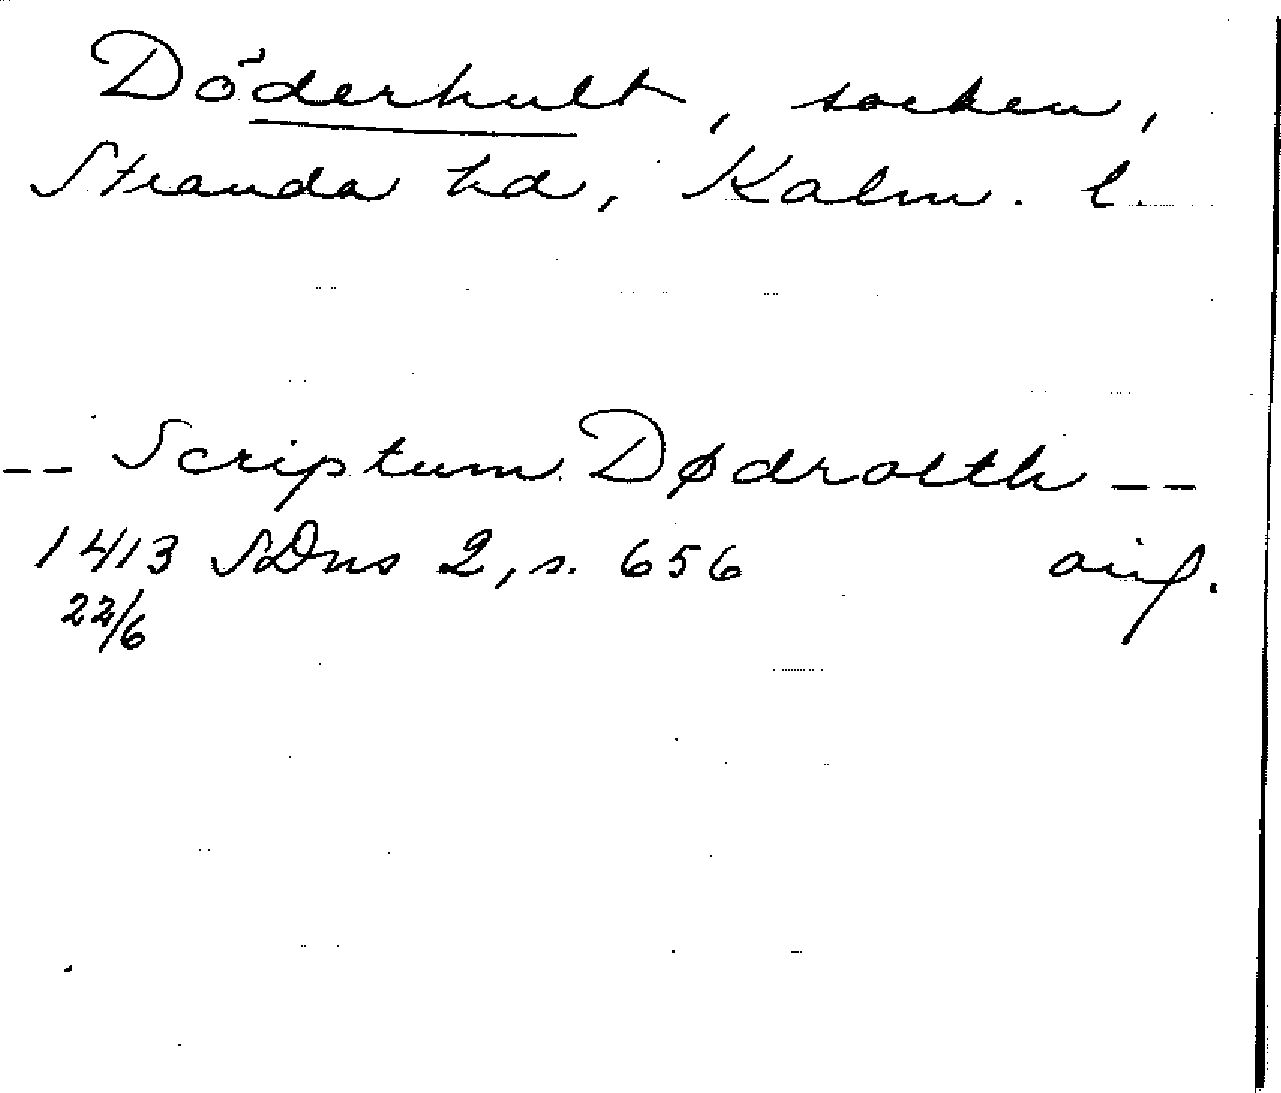 Döderhult, socken,
Stranda hd, Kalm. l.
-- Scriptum Dødrolth --
1413 SDns 2, s. 656 avs.
22/6